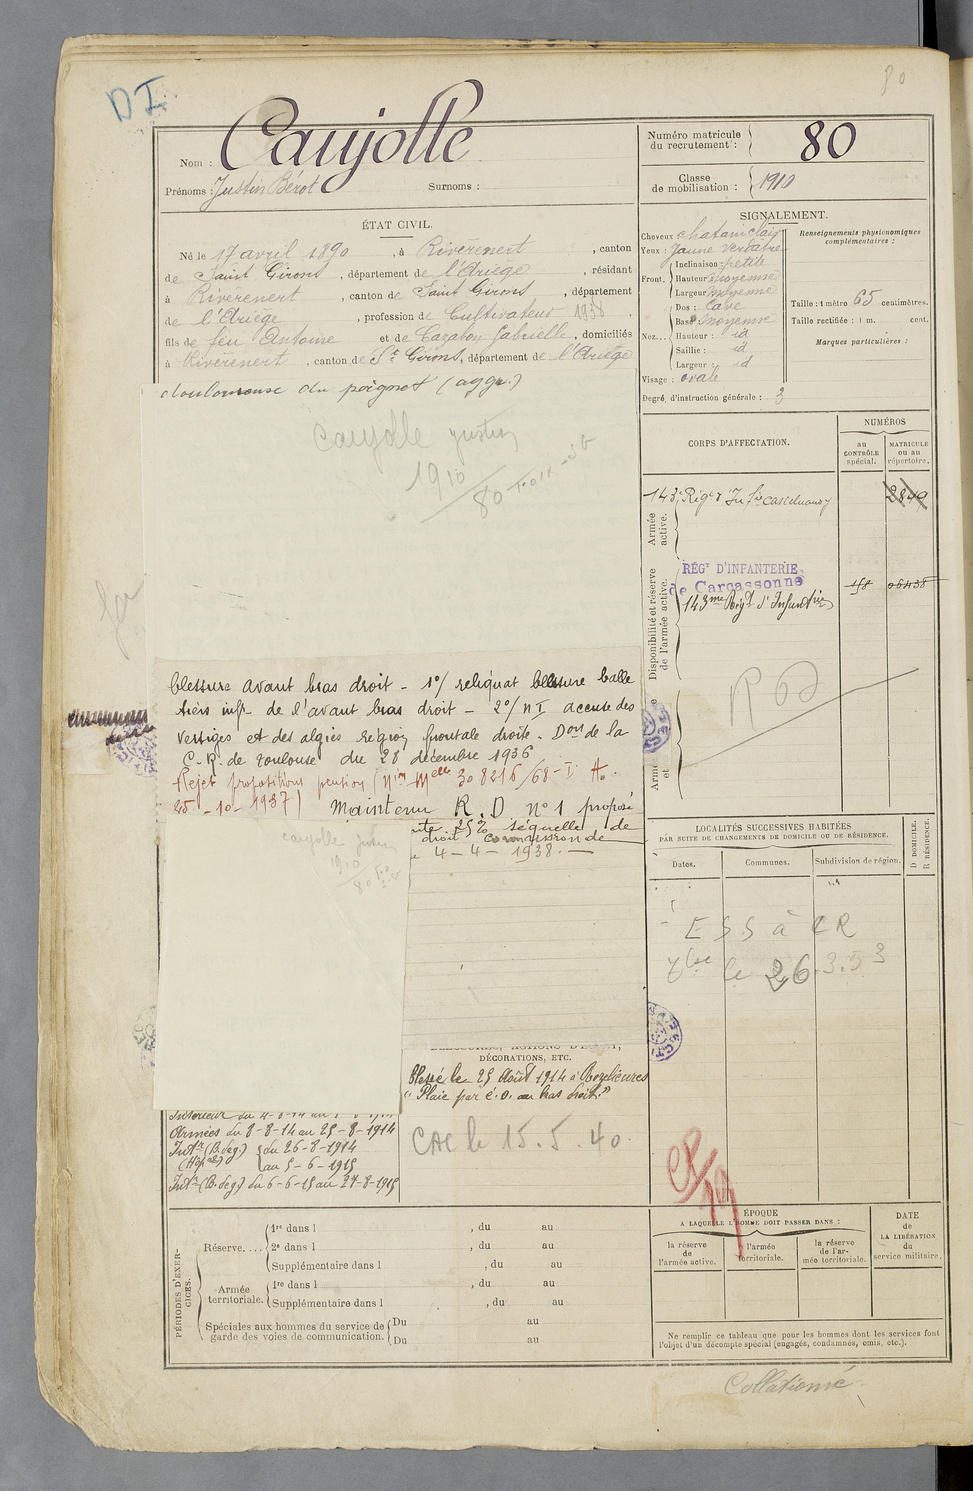 80
D I
Nom : Caujolle
Prénoms : Justin Bérot Surnoms :
Numéro matricule
du recrutement : 80
Classe
de mobilisation : 1910
ÉTAT CIVIL.
Né le 17 avril 1890, à Riverenert, canton
de Saint Girons, département de l'Ariège, résidant
à Riverenert, canton de Saint Girons, département
de l'Ariège, profession de Cultivateur 1938,
fils de feu Antoine et de Cazabon Gabrielle, domiciliés
à Riverenert, canton de St Girons, département de l'Ariège
SIGNALEMENT.
Cheveux chatain clair
Yeux : Jaune verdatre
Front. Inclinaison : petite
Hauteur moyenne
Largeur moyenne
Nez... Dos : Cave
Base : moyenne
Hauteur : id
Saillie : id
Largeur : id
Visage : ovale
Degré d'instruction générale : 3
Renseignements physionomiques
complémentaires :
Taille : 1 mètre 65 centimètres.
Taille rectifiée : 1 m. cent.
Marques particulières :
douloureuse du poignet (aggr.)
Caujolle Justin
1910
80 Foix
CORPS D'AFFECTATION.
NUMÉROS
au
CONTRÔLE
spécial.
MATRICULE
ou au
répertoire.
Armée
active.
143e Régt d'Infie Castelnaudary 2840
Disponibilité et réserve
de l'armée active.
RÉGt D'INFANTERIE
de Carcassonne
143me Régt d'Infanterie 158 06438
R D
blessure avant bras droit - 1°/ reliquat blessure balle
tiers infr de l'avant bras droit - 2°/ n I accuse des
vertiges et des algies région frontale droite. Don de la
C. R. de Toulouse du 28 décembre 1936
Rejet propositions pension (nion Melle 308216/68-I A.
25-10-1937) Maintenu R.D n° 1 proposé
25% séquelle de
droit commission de
4-4-1938.
Caujolle Justin
1910
80
LOCALITÉS SUCCESSIVES HABITÉES
PAR SUITE DE CHANGEMENTS DE DOMICILE OU DE RÉSIDENCE.
Dates. Communes. Subdivision de région.
D DOMICILE.
R RÉSIDENCE.
ESS à CR
Tlse le 26.3.53
DÉCORATIONS, ETC.
Blessé le 25 Août 1914 à Rozelieures
"Plaie par é.o. au bras droit."
CAC le 15.5.40.
Intérieur du 4-8-14 au
Armées du 8-8-14 au 25-8-1914
Intr (B. deg.) du 26-8-1914
(Hôpal) au 5-6-1915
Intr (B. deg) du 6-6-15 au 27-8-1915
PÉRIODES D'EXER-
CICES.
Réserve.... 1re dans l , du au
2e dans l , du au
Supplémentaire dans l , du au
Armée
territoriale. 1re dans l , du au
Supplémentaire dans l , du au
Spéciales aux hommes du service de
garde des voies de communication. Du au
Du au
ÉPOQUE
A LAQUELLE L'HOMME DOIT PASSER DANS :
la réserve
de
l'armée active.
l'armée
territoriale.
la réserve
de l'ar-
mée territoriale.
DATE
de
LA LIBÉRATION
du
service militaire.
Ne remplir ce tableau que pour les hommes dont les services font
l'objet d'un décompte spécial (engagés, condamnés, omis, etc.).
Collationné